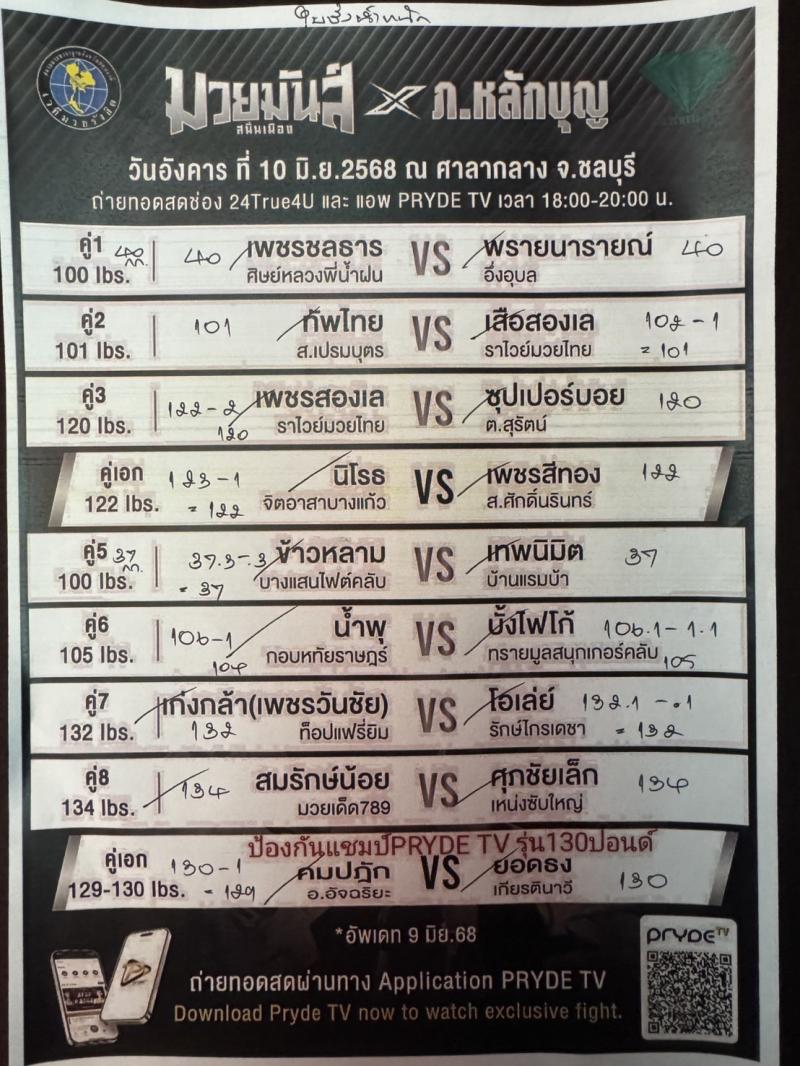 ใบชั่งน้ำหนัก
มวยมันส์ X ภ.หลักบุญ
สนั่นเมือง
วันอังคาร ที่ 10 มิ.ย.2568 ณ ศาลากลาง จ.ชลบุรี
ถ่ายทอดสดช่อง 24True4U และ แอพ PRYDE TV เวลา 18:00-20:00 น.
คู่1 40 กก. 40 เพชรชลธาร VS พรายนารายณ์ 40
100 lbs. ศิษย์หลวงพี่น้ำฝน อึ่งอุบล
คู่2 101 ทัพไทย VS เสือสองเล 102-1
101 lbs. ส.เปรมบุตร ราไวย์มวยไทย = 101
คู่3 122-2 เพชรสองเล VS ซุปเปอร์บอย 120
120 lbs. 120 ราไวย์มวยไทย ต.สุรัตน์
คู่เอก 123-1 นิโรธ VS เพชรสีทอง 122
122 lbs. = 122 จิตอาสาบางแก้ว ส.ศักดิ์นรินทร์
คู่5 37 กก. 37.3-.3 ข้าวหลาม VS เทพนิมิต 37
100 lbs. = 37 บางแสนไฟต์คลับ บ้านแรมบ้า
คู่6 106-1 น้ำพุ VS บั้งไฟโก้ 106.1-1.1
105 lbs. 104 กอบหทัยราษฎร์ ทรายมูลสนุกเกอร์คลับ 105
คู่7 เก่งกล้า(เพชรวันชัย) VS โอเล่ย์ 132.1-.1
132 lbs. 132 ท็อปแฟรี่ยิม รักษ์ไกรเดชา = 132
คู่8 134 สมรักษ์น้อย VS ศุภชัยเล็ก 134
134 lbs. มวยเด็ด789 เหน่งซับใหญ่
ป้องกันแชมป์PRYDE TV รุ่น130ปอนด์
คู่เอก 130-1 คมปฎัก VS ยอดธง 130
129-130 lbs. = 129 อ.อัจฉริยะ เกียรตินาวี
*อัพเดท 9 มิ.ย.68
PRYDE TV
ถ่ายทอดสดผ่านทาง Application PRYDE TV
Download Pryde TV now to watch exclusive fight.